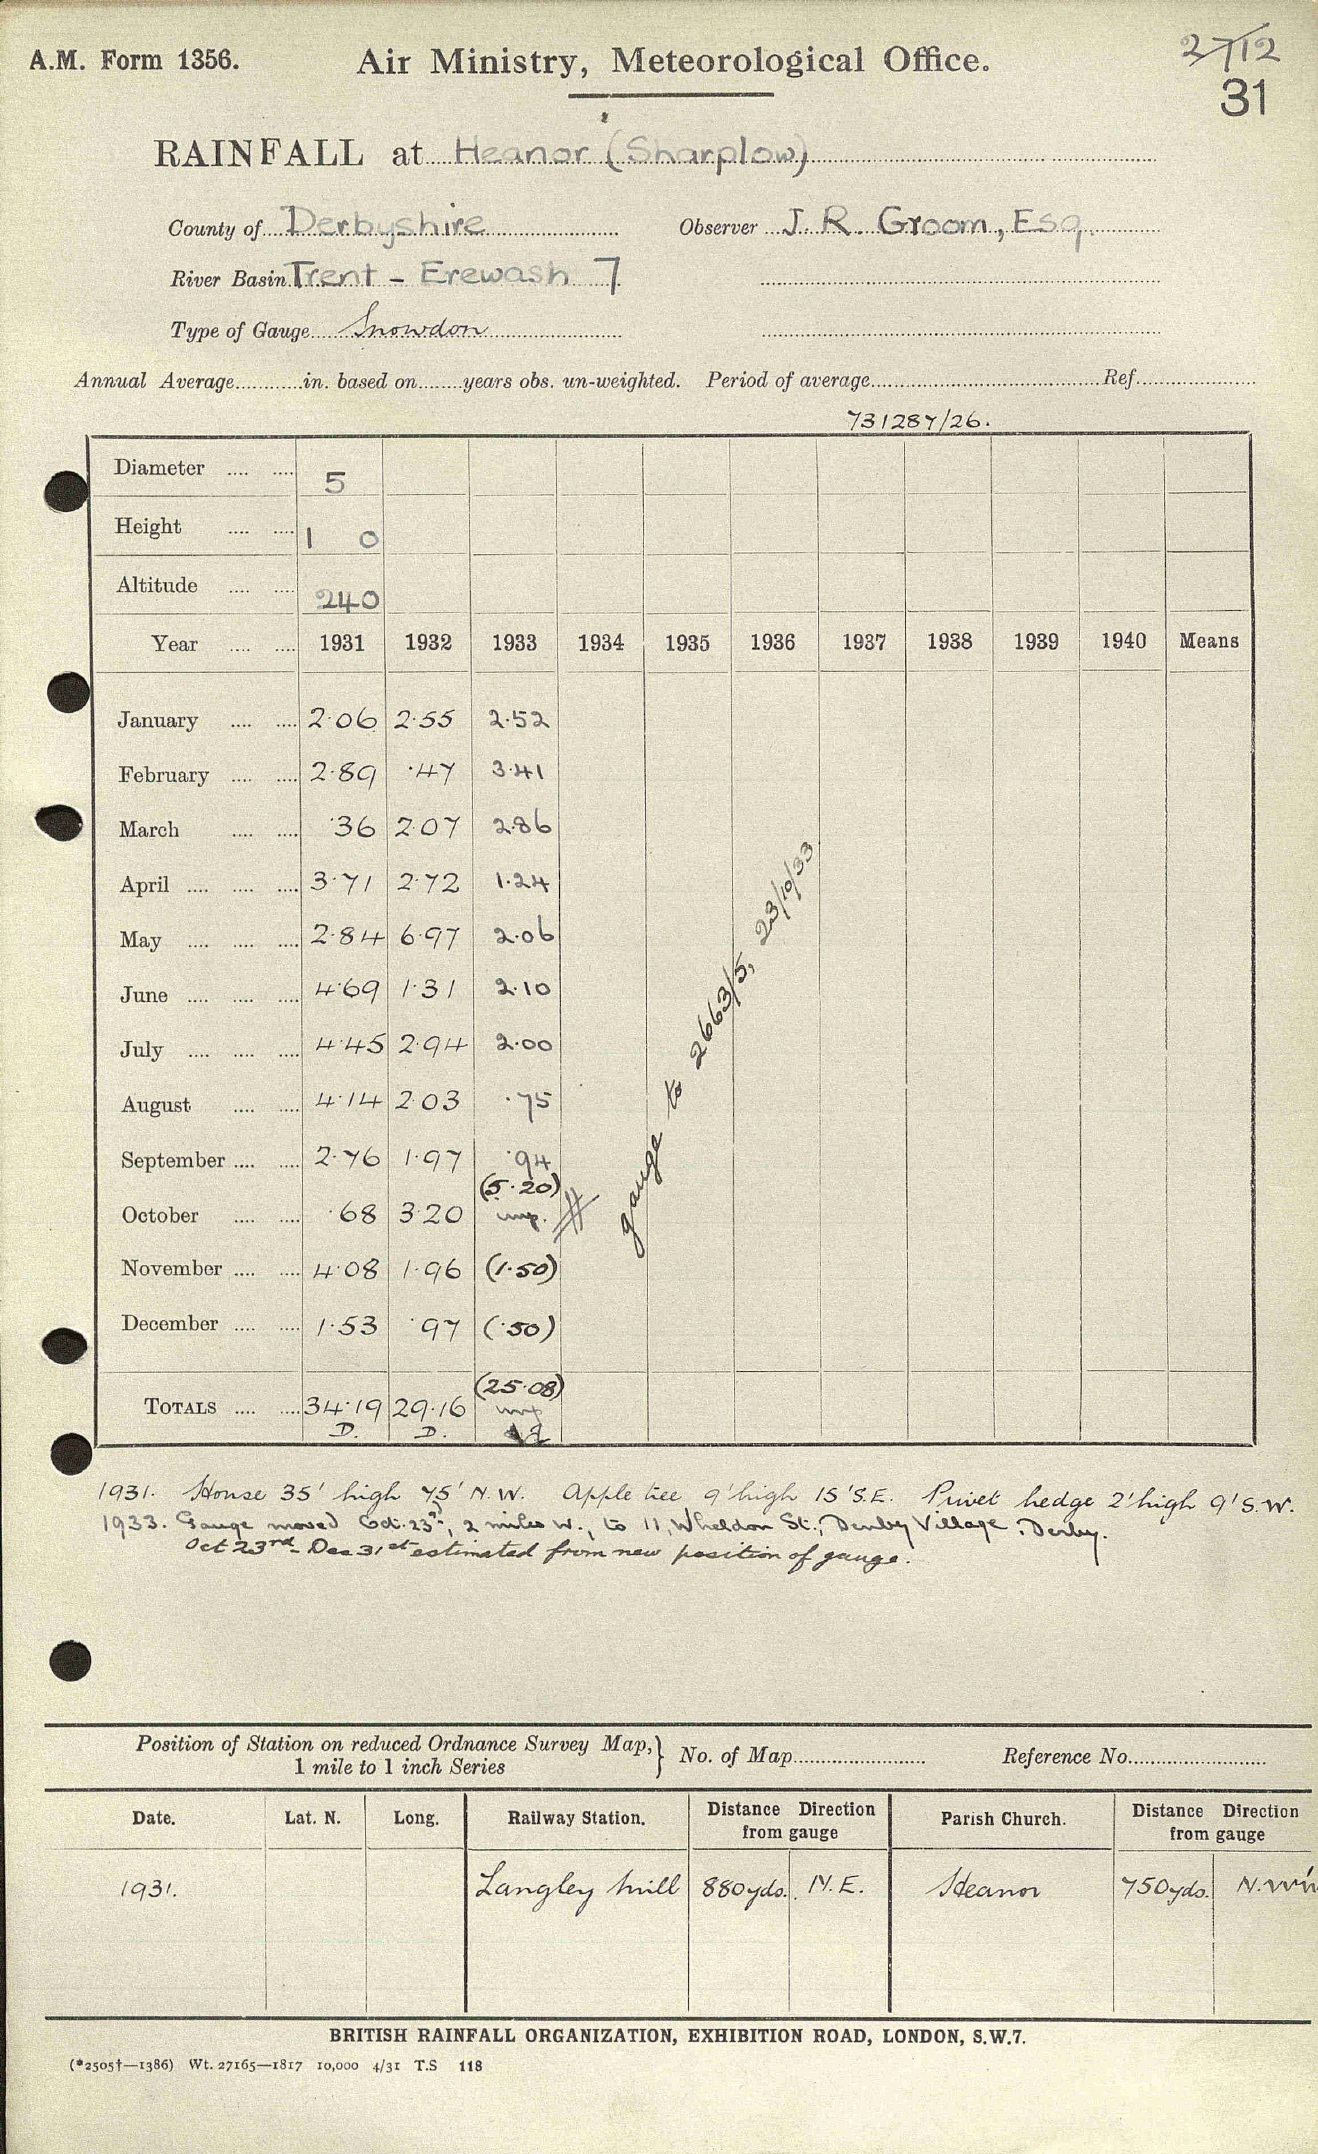 A.M. Form 1356. Air Ministry, Meteorological Office. 2712
31
RAINFALL at Heanor (Sharplow)
County of Derbyshire Observer J. R. Groom, Esq.
River Basin Trent - Erewash 7
Type of Gauge Snowdon
Annual Average in. based on years obs. un-weighted. Period of average Ref.
731287/26.
Diameter 5
Height 1 0
Altitude 240
Year 1931 1932 1933 1934 1935 1936 1937 1938 1939 1940 Means
January 2.06 2.55 2.52
February 2.89 .47 3.41
March .36 2.07 2.86
April 3.71 2.72 1.24
May 2.84 6.97 2.06
June 4.69 1.31 2.10
July 4.45 2.94 2.00
August 4.14 2.03 .75
September 2.76 1.97 .94
(5.20)
October .68 3.20 imp.
November 4.08 1.96 (1.50)
December 1.53 .97 (.50)
(25.08)
TOTALS 34.19 29.16 imp
D. D.
gauge to 2663/5, 23/10/33
1931. House 35' high 75' N.W. Apple tree 9' high 15' S.E. Privet hedge 2' high 9' S.W.
1933. Gauge moved Oct. 23rd, 2 miles W., to 11, Wheldon St., Denby Village, Derby.
Oct 23rd - Dec 31st estimated from new position of gauge.
Position of Station on reduced Ordnance Survey Map,} No. of Map Reference No.
1 mile to 1 inch Series
Date. Lat. N. Long. Railway Station. Distance Direction from gauge Parish Church. Distance Direction from gauge
1931. Langley Mill 880yds. N.E. Heanor 750yds.
BRITISH RAINFALL ORGANIZATION, EXHIBITION ROAD, LONDON, S.W.7.
(*2505†—1386) Wt. 27165—1817 10,000 4/31 T.S 118